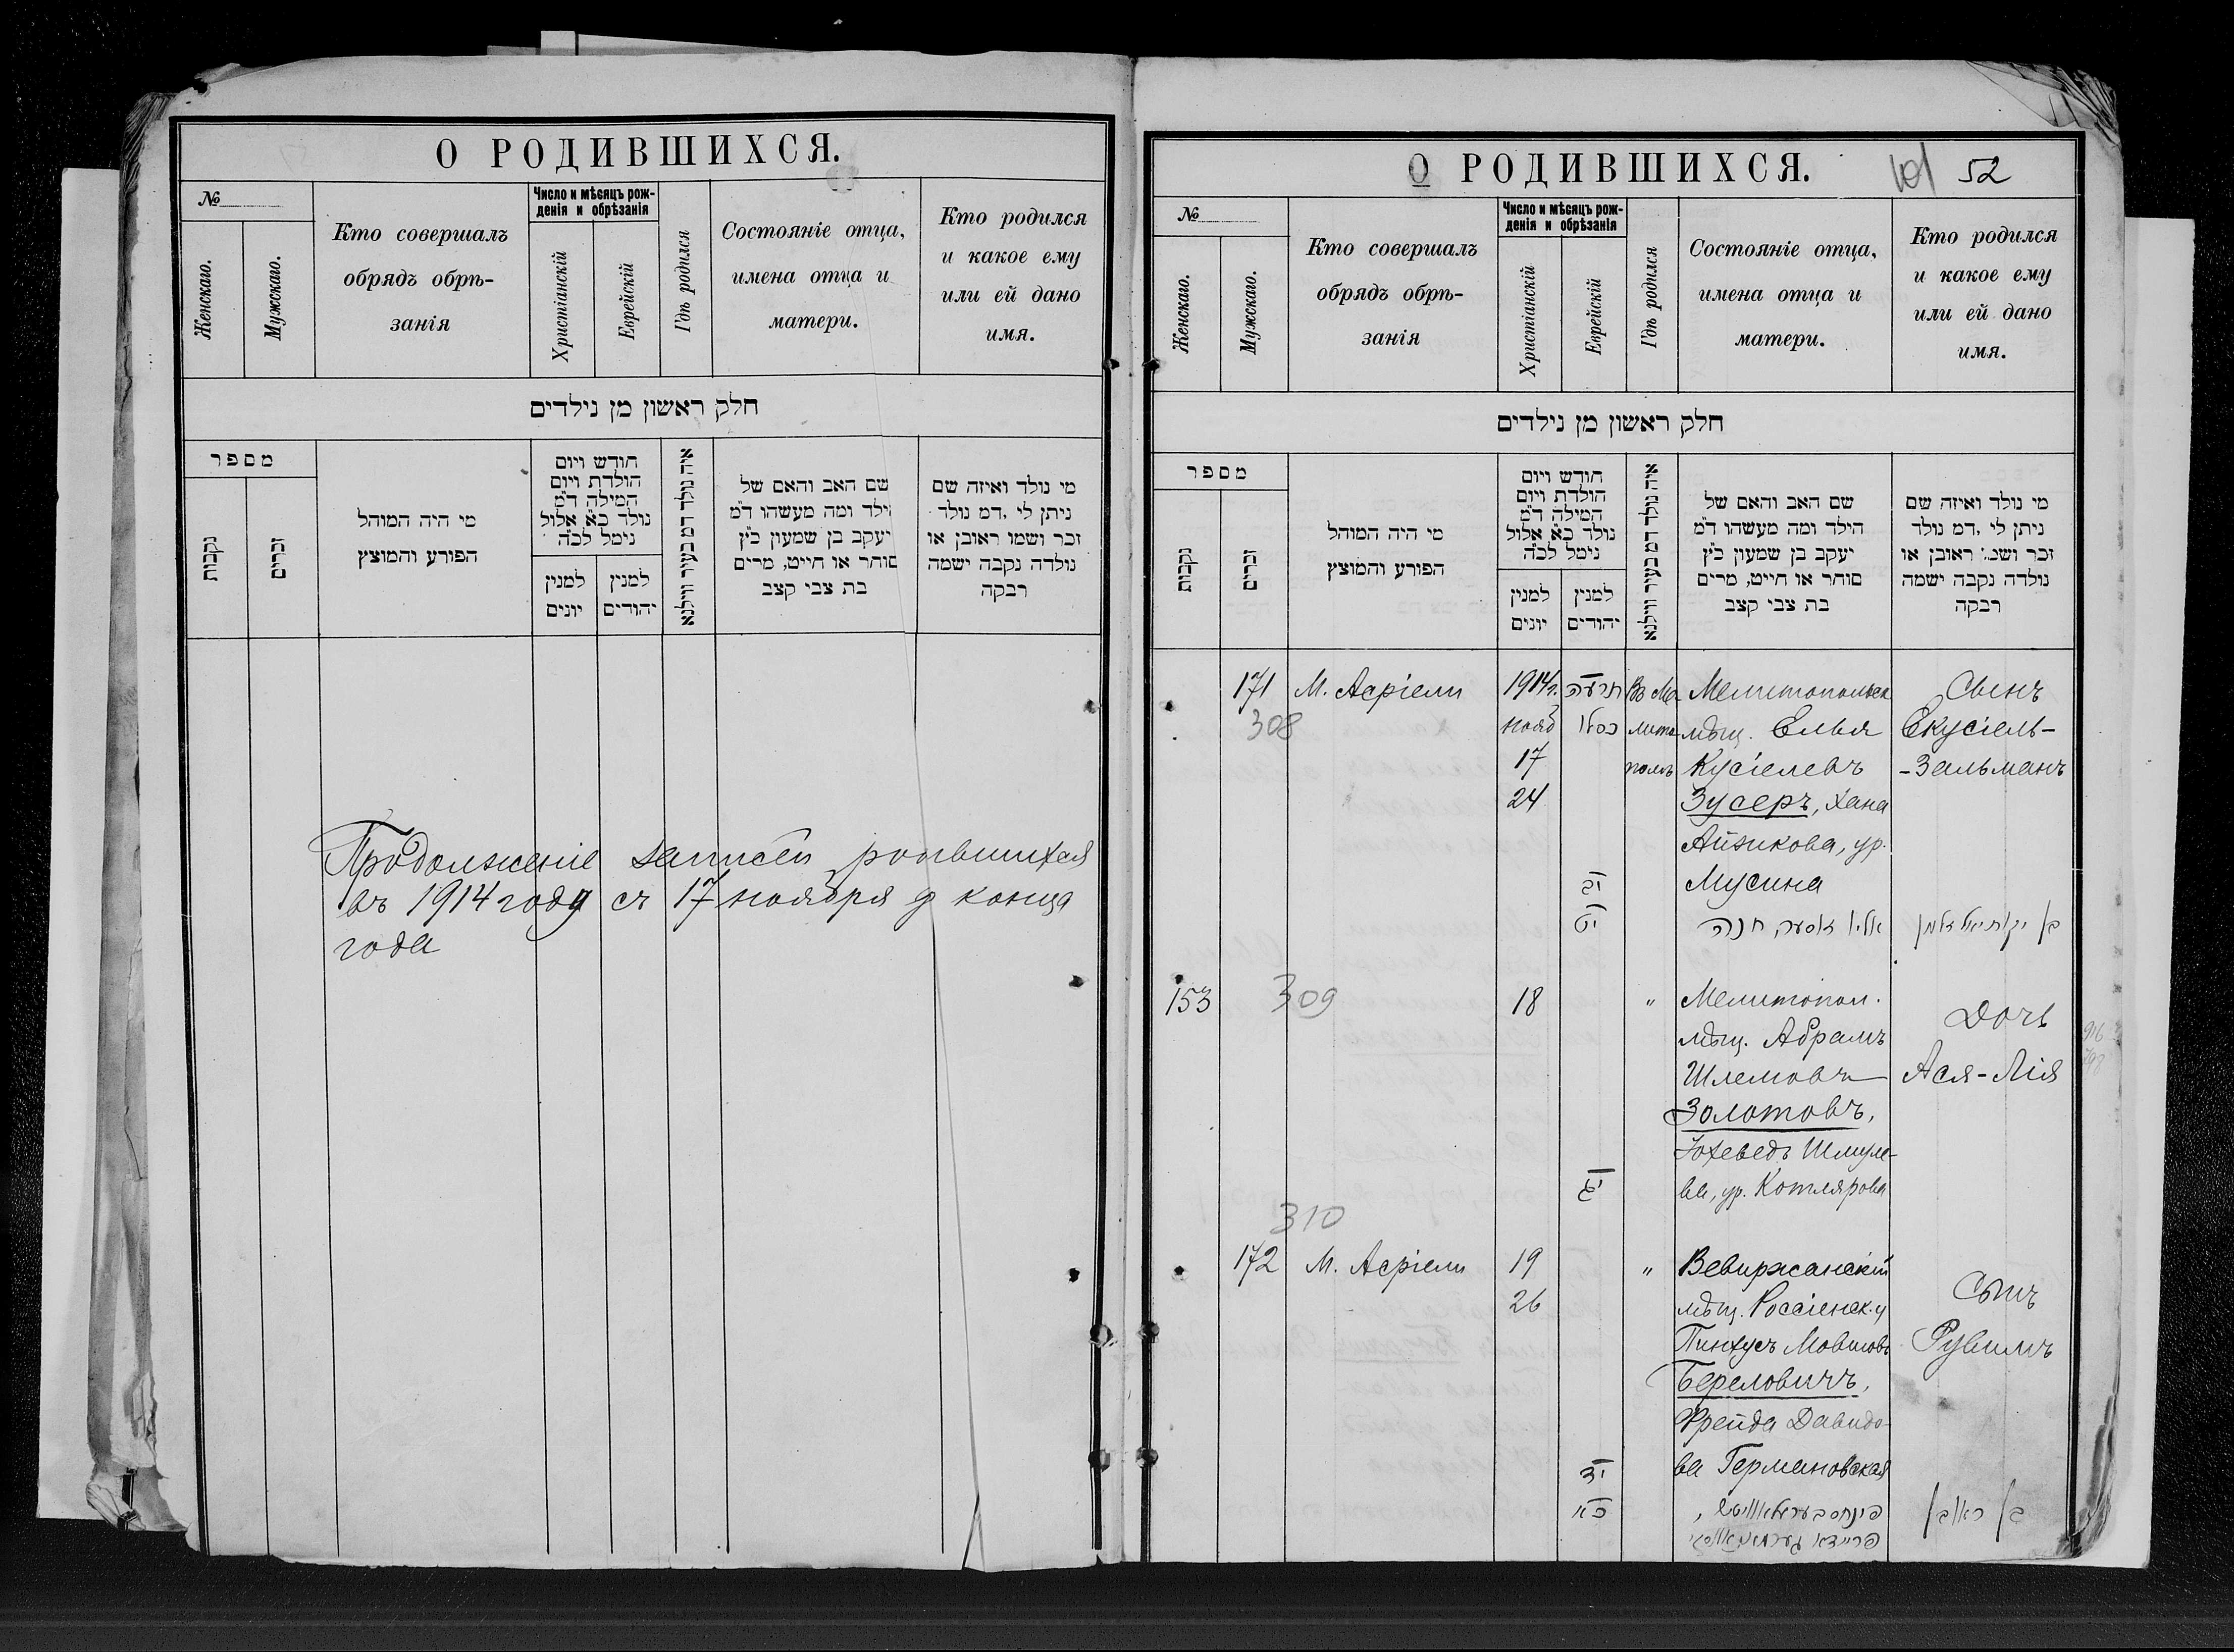 О РОДИВШИХСЯ.
№
Женскаго.
Мужскаго.
Кто совершалъ
обрядъ обрѣ-
занія
Число и мѣсяцъ рож-
денія и обрѣзанія
Христіанскій
Еврейскій
Гдѣ родился
Состояніе отца,
имена отца и
матери.
Кто родился
и какое ему
или ей дано
имя.
חלק ראשון מן נילדים
מספר
נקבות
זכרים
מי היה המוהל
הפורע והמוצץ
חודש ויום
הולדת ויום
המילה ד״מ
נולד כ״א אלול
נימל לכ״ה
למנין
יונים
למנין
יהודים
איה נולד דמ בעיר ווילנא
שם האב והאם של
הילד ומה מעשהו ד״מ
יעקב בן שמעון כ״ץ
סוחר או חייט, מרים
בת צבי קצב
מי נולד ואיזה שם
ניתן לי ,דמ נולד
זכר ושמו ראובן או
נולדה נקבה ישמה
רבקה
Продолженіе записи роившихся
въ 1914 году съ 17 ноября д конца
года
О РОДИВШИХСЯ.
101 52
№
Женскаго.
Мужскаго.
Кто совершалъ
обрядъ обрѣ-
занія
Число и мѣсяцъ рож-
денія и обрѣзанія
Христіанскій
Еврейскій
Гдѣ родился
Состояніе отца,
имена отца и
матери.
Кто родился
и какое ему
или ей дано
имя.
חלק ראשון מן נילדים
מספר
נקבות
זכרים
מי היה המוהל
הפורע והמוצץ
חודש ויום
הולדת ויום
המילה ד״מ
נולד כ״א אלול
נימל לכ״ה
למנין
יונים
למנין
יהודים
איה נולד דמ בעיר ווילנא
שם האב והאם של
הילד ומה מעשהו ד״מ
יעקב בן שמעון כ״ץ
סוחר או חייט, מרים
בת צבי קצב
מי נולד ואיזה שם
ניתן לי ,דמ נולד
זכר ושמ׳ ראובן או
נולדה נקבה ישמה
רבקה
171
308
М. Асріели
1914 г.
нояб
17
24
תרעה
כסלו
יב
יט
Въ Ме-
лито-
полѣ
Мелитопольск
мѣщ. Елья
Кусіелевъ
Зусеръ, Хана
Айзикова, ур.
Мусина
אליו זוסער, חנה
Сынъ
Екусіель-
-Зальманъ
בן יקותיאל זלמן
153
309
18
יג
"
Мелитопол.
мѣщ. Абрамъ
Шлемовъ
Золотовъ,
Іохеведъ Шмуле-
ва, ур. Котлярова
Дочь
Ася-Лія
310
172
М. Асріели
19
26
יד
כא
"
Вевиржанскій
мѣщ. Россіенск. у
Пинхусъ Мовшовъ
Береловичъ,
Фрейда Давидо-
ва Германовская
פינחס בערעלאוויטש,
פריידא גערמאנאווסקי
Сынъ
Рувимъ
בן ראובן